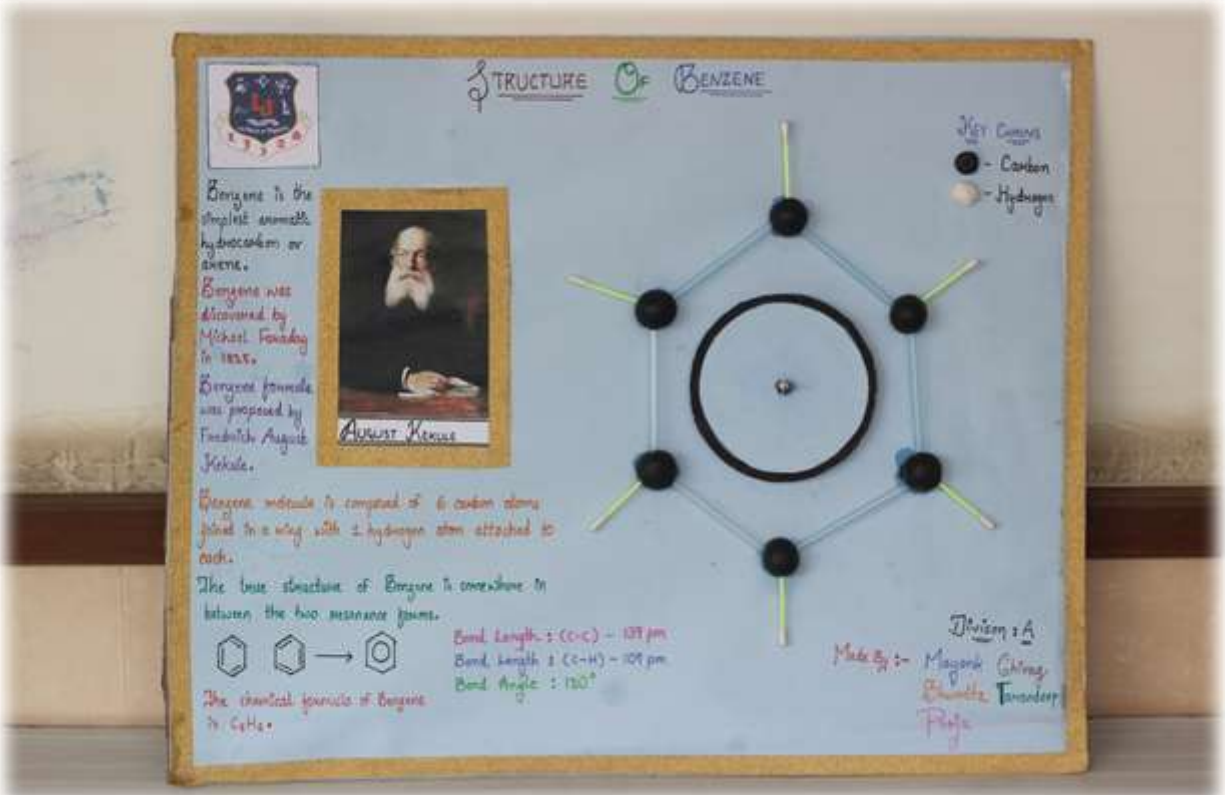 STRUCTURE OF BENZENE
KEY CHAINS
- Carbon
- Hydrogen
Benzene is the
simplest aromatic
hydrocarbon or
arene.
Benzene was
discovered by
Michael Faraday
in 1825.
Benzene formula
was proposed by
Friedrich August
Kekule.
AUGUST KEKULE
Benzene molecule is composed of 6 carbon atoms
joined in a ring with 1 hydrogen atom attached to
each.
The true structure of Benzene is somewhere in
between the two resonance forms.
Bond Length : (C-C) - 139 pm
Bond Length : (C-H) - 109 pm
Bond Angle : 120°
The chemical formula of Benzene
is C₆H₆.
Divison : A
Made By :- Mayank Chirag
Tanandeep
Pooja